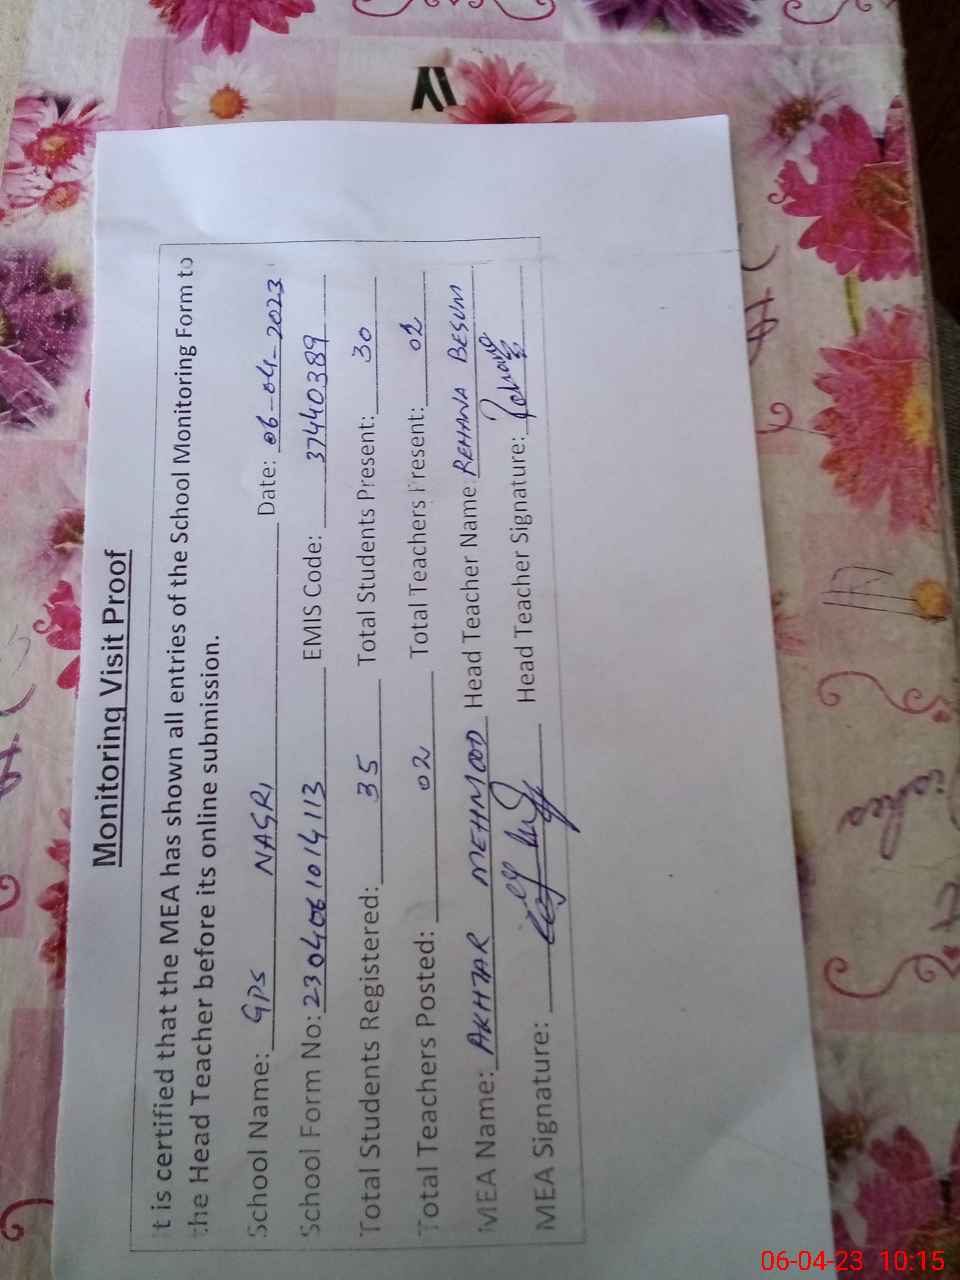 Monitoring Visit Proof
It is certified that the MEA has shown all entries of the School Monitoring Form to
the Head Teacher before its online submission.
School Name: GPS NAGRI Date: 06-04-2023
School Form No: 2304061014113 EMIS Code: 37440389
Total Students Registered: 35 Total Students Present: 30
Total Teachers Posted: 02 Total Teachers Present: 02
MEA Name: AKHTAR MEHMOOD Head Teacher Name: REHANA BEGUM
MEA Signature: Head Teacher Signature: Rehana
06-04-23 10:15